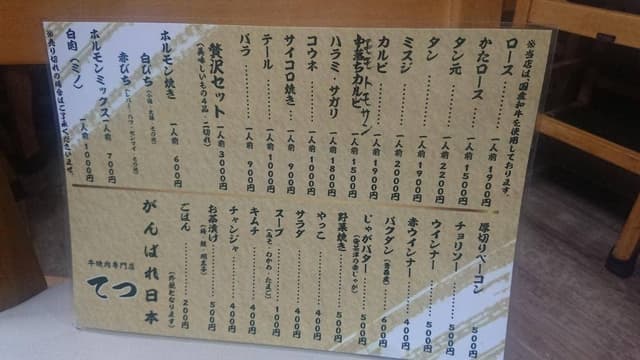 ※当店は、国産和牛を使用しております。
ロース………一人前1900円
かたロース………一人前1500円
タン元………一人前2200円
タン………一人前1900円
ミスジ………一人前2000円
カルビ………一人前1900円
中落ちカルビ………一人前1500円
ハラミ・サガリ 一人前1800円
コウネ………一人前1000円
サイコロ焼き… 一人前900円
テール………一人前1000円
バラ………一人前900円
贅沢セット 一人前3000円
(美味しいもの4品・一切れ)
ホルモン焼き 一人前600円
白ぴち
赤ぴち
ホルモンミックス 一人前700円
白肉(ミノ) 一人前1000円
※売り切れの場合はご了承くださいませ。
厚切りベーコン 500円
チョリソー… 500円
ウインナー… 500円
赤ウインナー 400円
バクダン… 600円
(青森産)
じゃがバター 500円
野菜焼き… 500円
やっこ… 400円
サラダ… 400円
スープ… 100円
(みそ・わかめ・たまご)
キムチ… 400円
チャンジャ… 400円
お茶漬け… 500円
(梅・鮭・明太子)
ごはん… 200円
(外税となります)
がんばれ日本
牛焼肉専門店
てつ